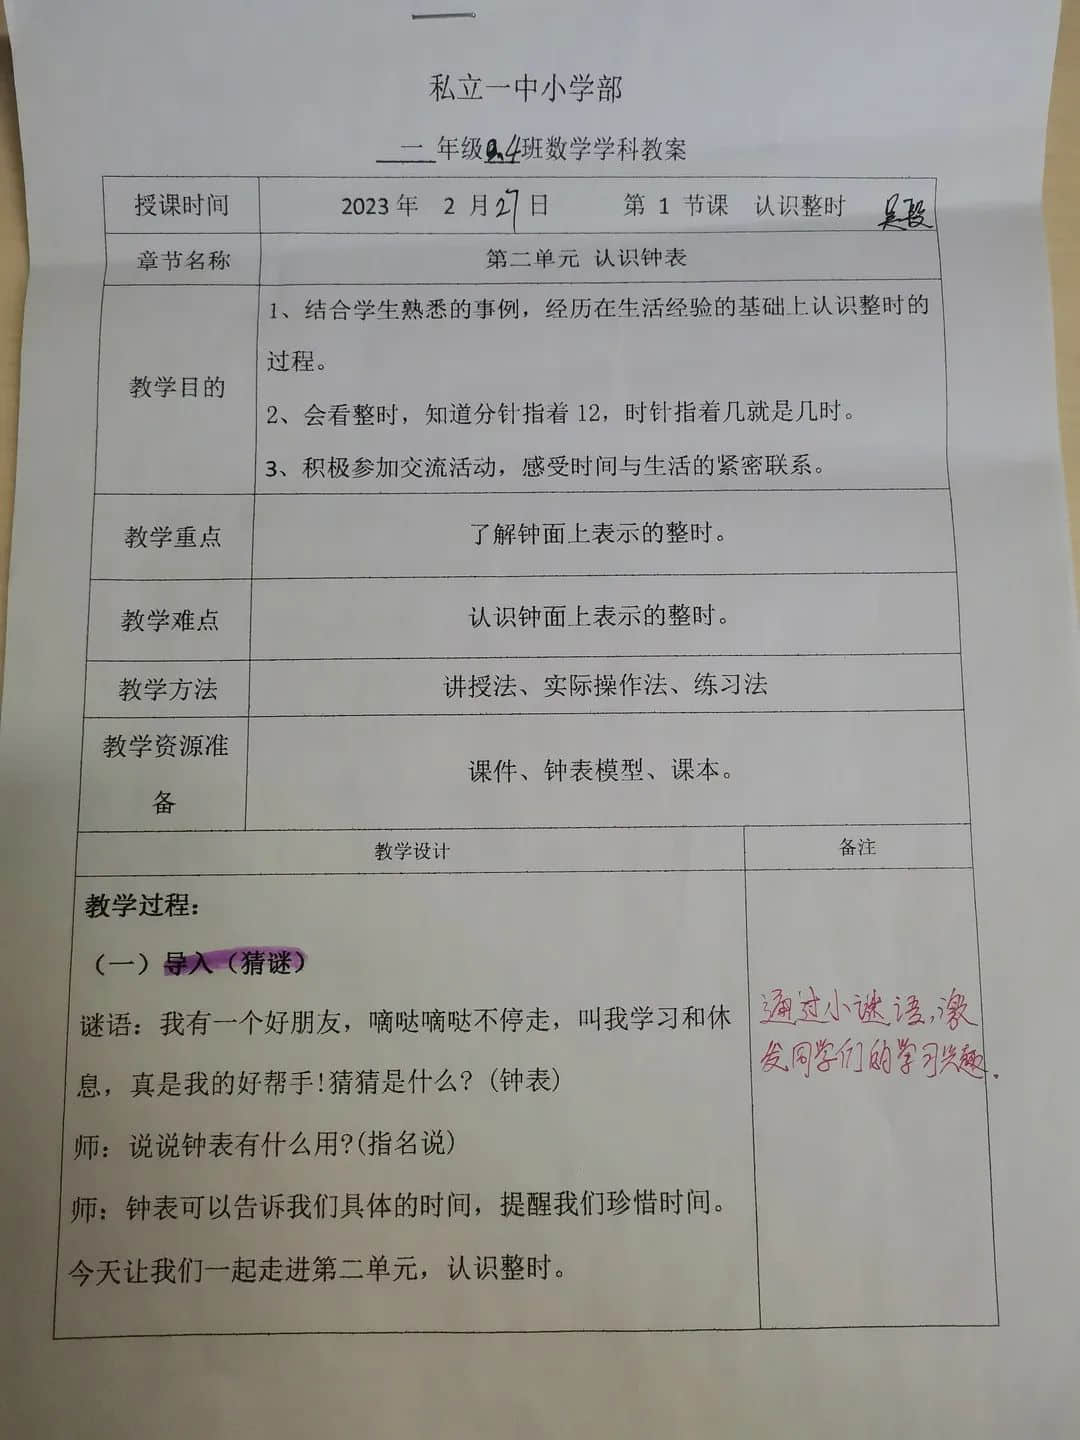 私立一中小学部
一 年级2.4班数学学科教案
授课时间 2023年 2 月27日 第 1 节课 认识整时
章节名称 第二单元 认识钟表
教学目的
1、结合学生熟悉的事例，经历在生活经验的基础上认识整时的
过程。
2、会看整时，知道分针指着 12，时针指着几就是几时。
3、积极参加交流活动，感受时间与生活的紧密联系。
教学重点 了解钟面上表示的整时。
教学难点 认识钟面上表示的整时。
教学方法 讲授法、实际操作法、练习法
教学资源准
备
课件、钟表模型、课本。
教学设计 备注
教学过程：
（一）导入（猜谜）
谜语：我有一个好朋友，嘀哒嘀哒不停走，叫我学习和休
息，真是我的好帮手!猜猜是什么? (钟表)
师：说说钟表有什么用?(指名说)
师：钟表可以告诉我们具体的时间，提醒我们珍惜时间。
今天让我们一起走进第二单元，认识整时。
通过小谜语，激
发同学们的学习兴趣.